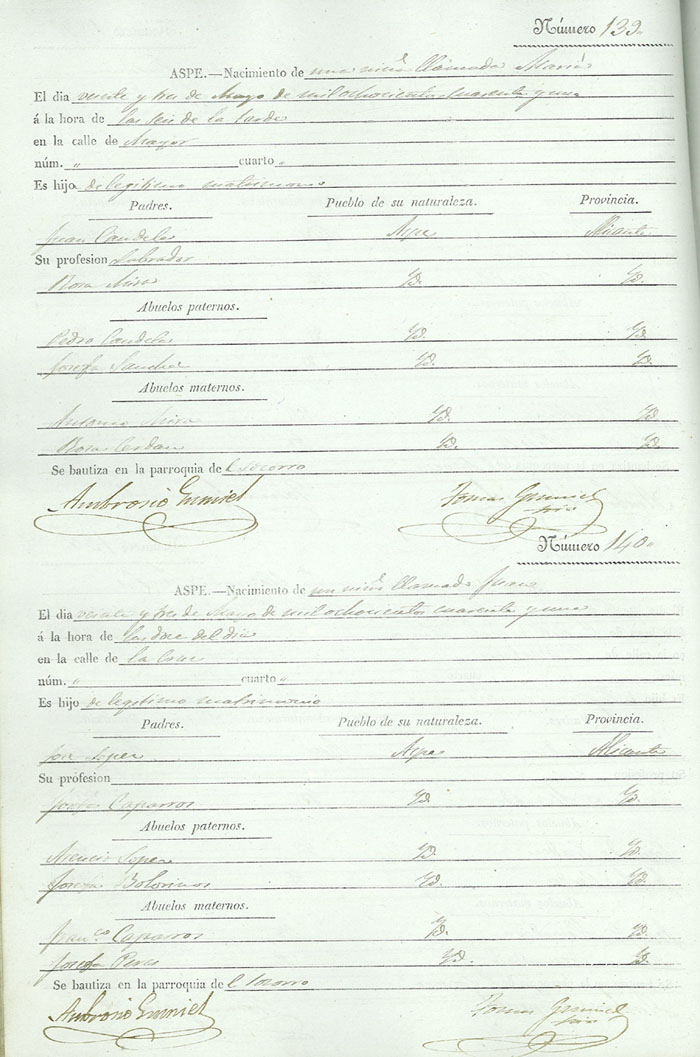 Número 139.
ASPE.—Nacimiento de una niña llamada María
El dia veinte y tres de Mayo de mil ochocientos cuarenta y uno
á la hora de las seis de la tarde
en la calle de Mayor
núm. „ cuarto „
Es hijo de legitimo matrimonio
Padres. Pueblo de su naturaleza. Provincia.
Juan Candela Aspe Alicante
Su profesion Labrador
Rosa Mira Yd. Yd.
Abuelos paternos.
Pedro Candela Yd. Yd.
Josefa Sanchez Yd. Yd.
Abuelos maternos.
Antonio Mira Yd. Yd.
Rosa Cerdan Yd. Yd.
Se bautiza en la parroquia de Socorro
Ambrosio Gumiel Tomas Gumiel
Srio
Número 140.
ASPE.—Nacimiento de un niño llamado Juan
El dia veinte y tres de Mayo de mil ochocientos cuarenta y uno
á la hora de las doce del dia
en la calle de la Cruz
núm. „ cuarto „
Es hijo de legitimo matrimonio
Padres. Pueblo de su naturaleza. Provincia.
José Lopez Aspe Alicante
Su profesion
Josefa Caparros Yd. Yd.
Abuelos paternos.
Lopez Yd. Yd.
Josefa Bolorinos Yd. Yd.
Abuelos maternos.
Franco Caparros Yd. Yd.
Josefa Perez Yd. Yd.
Se bautiza en la parroquia de l Socorro
Ambrosio Gumiel Tomas Gumiel
Srio